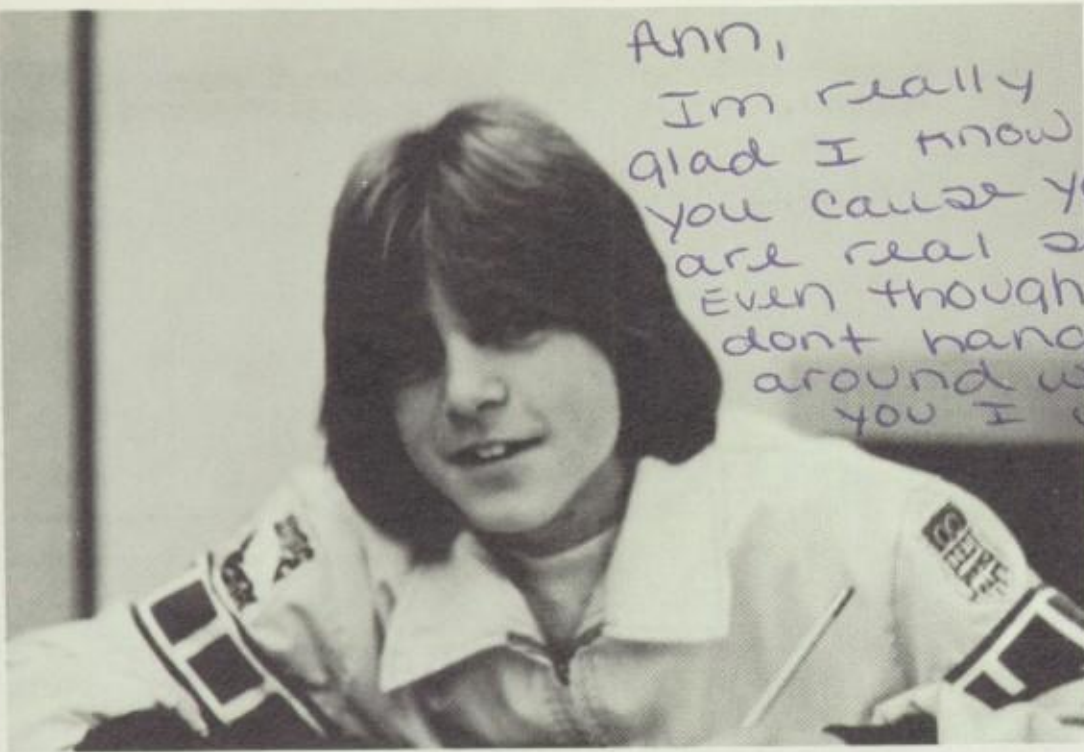 Ann,
Im really
glad I know
you cause
are real
Even though
dont hang
around
you I